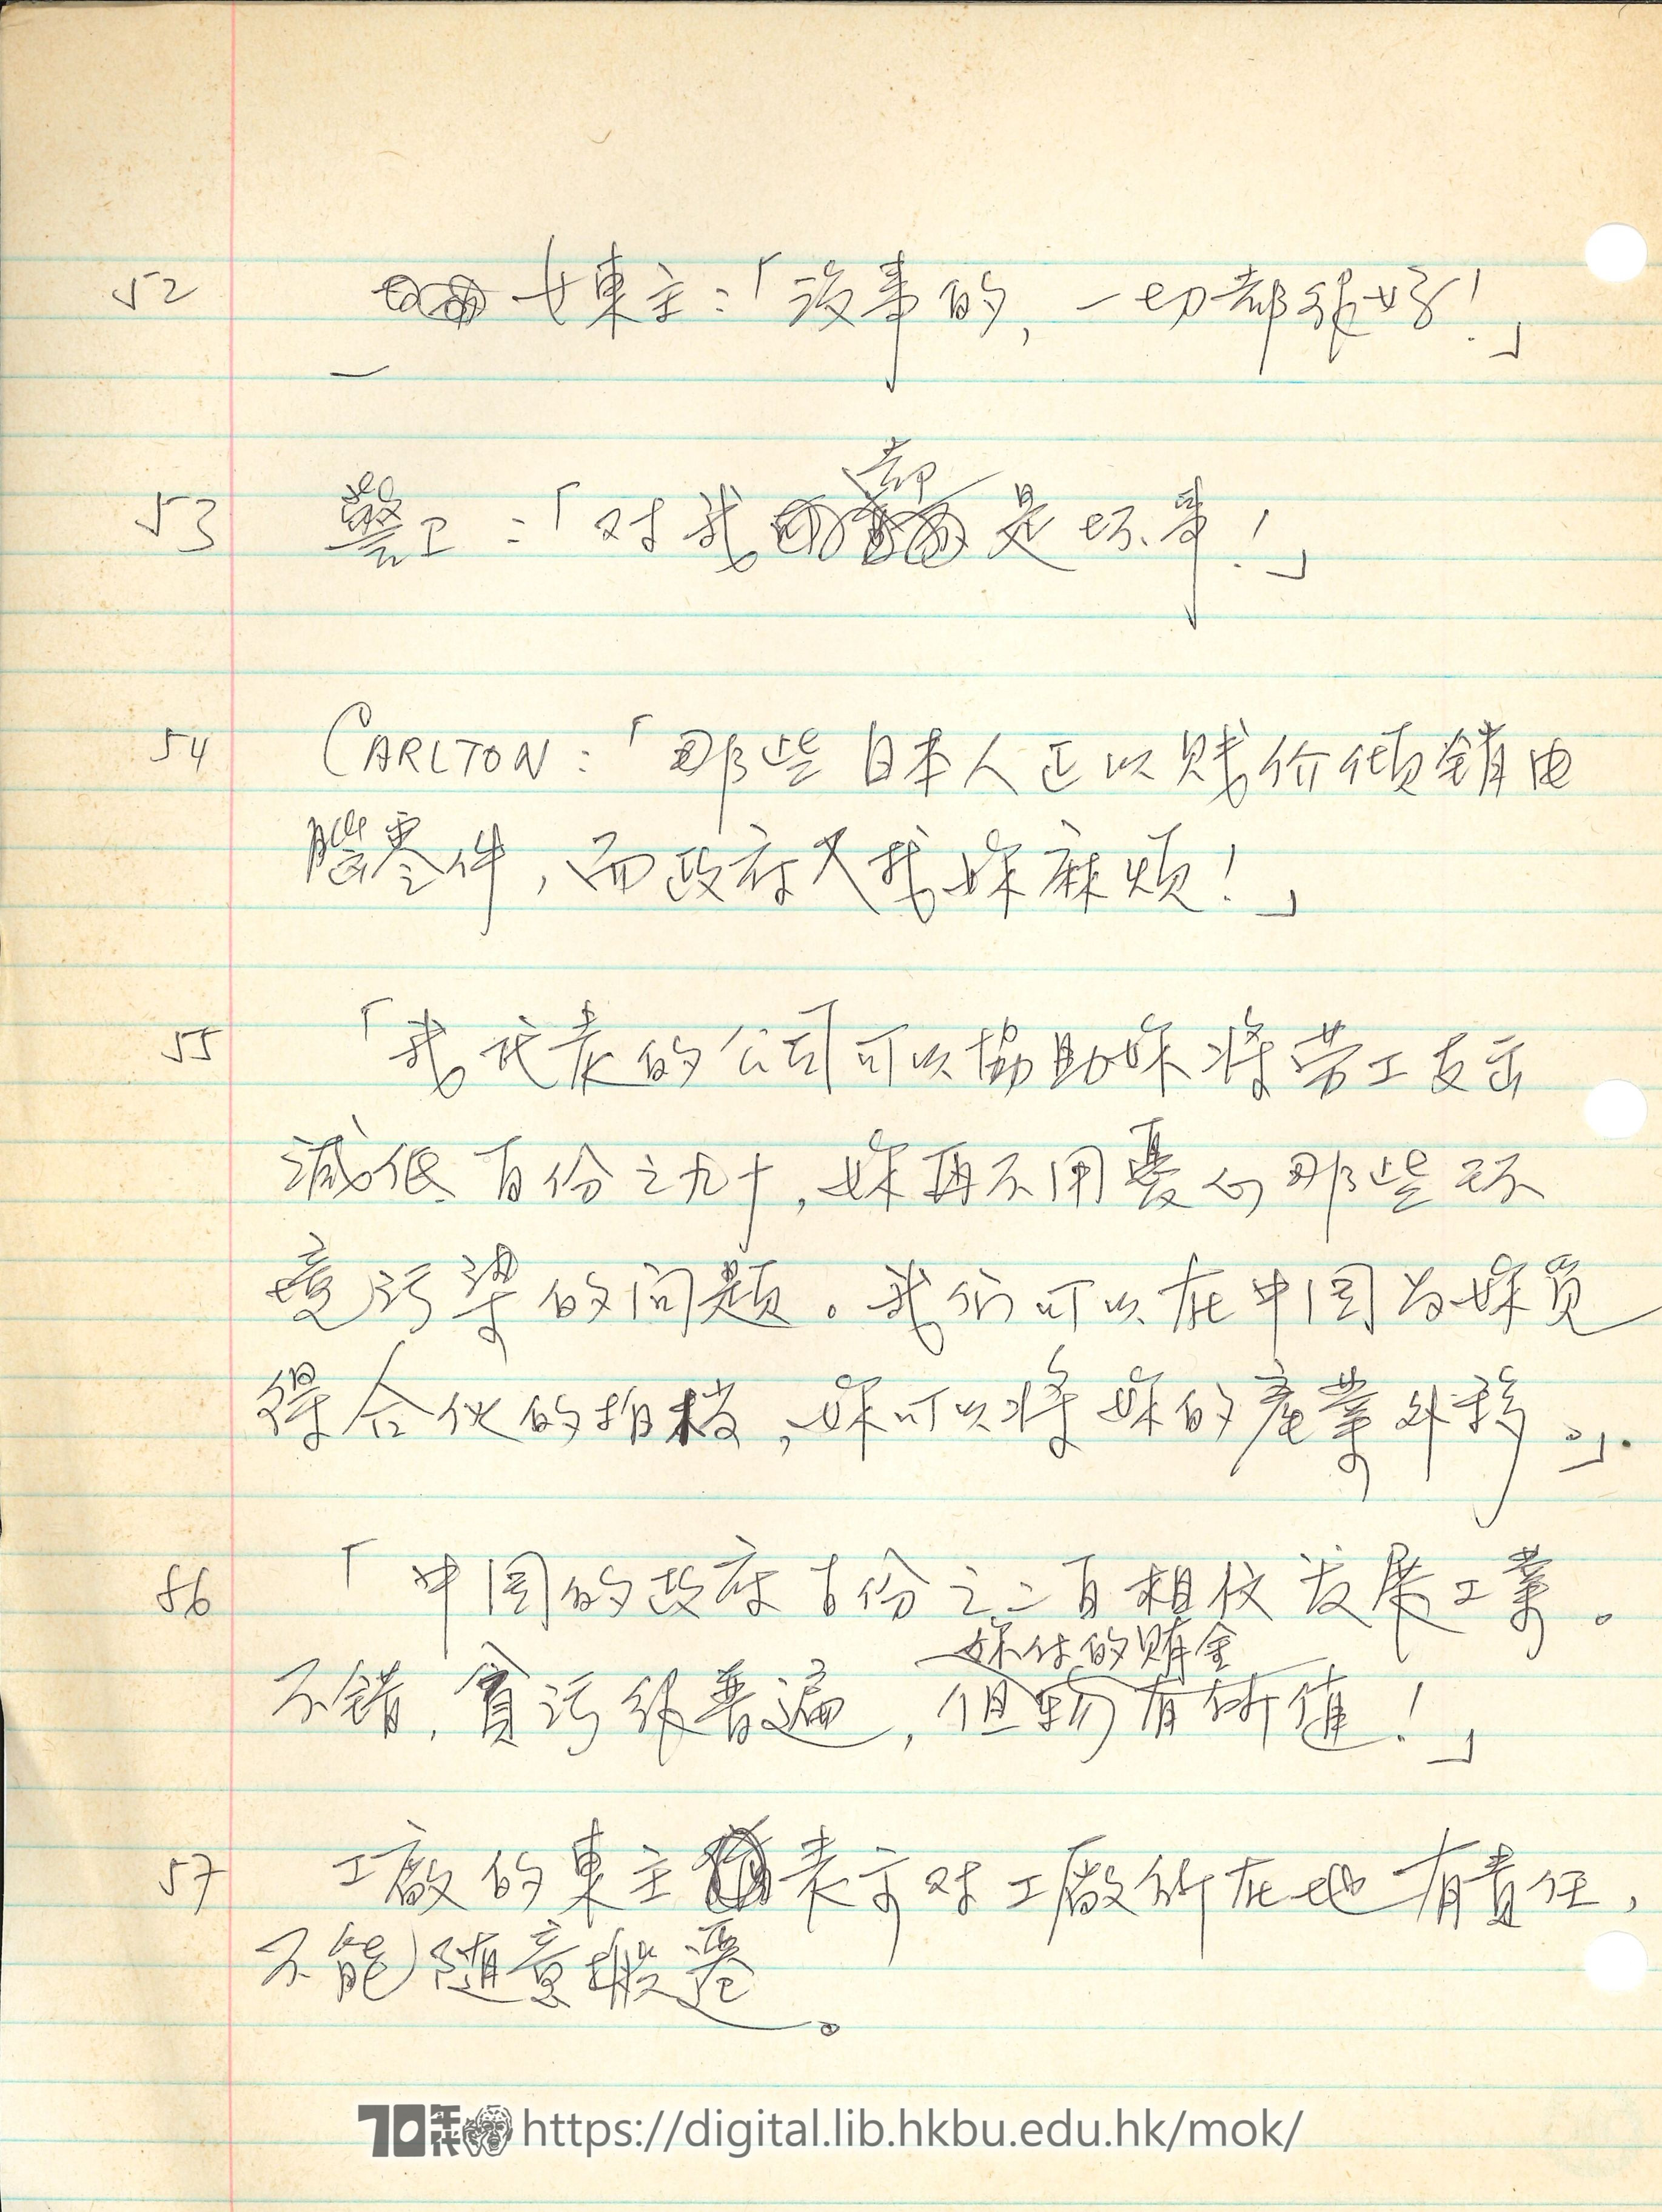 52 女東主：「沒事的，一切都很好！」
却
53 警卫：「对我是坏事！」
54 CARLTON：「那些日本人正以贱价倾銷电
腦零件，而政府又找妳麻煩！」
55 「我代表的公司可以協助妳将劳工支出
減低百份之九十，妳再不用憂心那些环
境污染的问題。我们可以在中国为妳覓
得合伙的拍档，妳可以将妳的產業外移。」
56 「中国的政府百份之二百相信发展工業。
妳付的賄金
不錯，貪污很普遍，但物有所值！」
57 工廠的東主表示对工廠所在地有責任，
不能随意搬遷。
70年代 https://digital.lib.hkbu.edu.hk/mok/